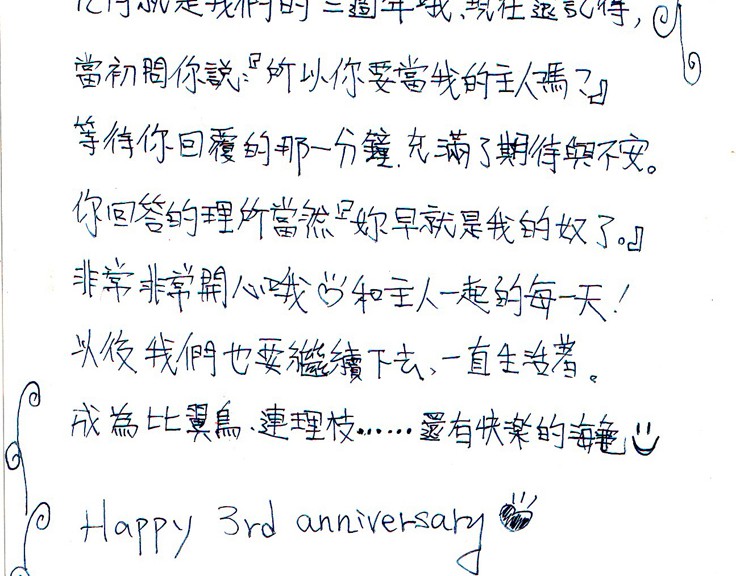 就是我們的三週年哦、現在還記得,
當初問你說:『所以你要當我的主人嗎?』
等待你回覆的那一分鐘.充滿了期待與不安。
你回答的理所當然『妳早就是我的奴了。』
非常非常開心哦♡和主人一起的每一天!
以後我們也要繼續下去、一直生活著。
成為比翼鳥、連理枝……還有快樂的海龜
Happy 3rd anniversary